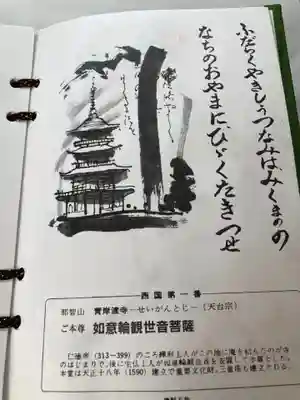 ふだらくやきしうつなみはみくまのの
なちのおやまにひゞくたきつせ
西国第一番
那智山 青岸渡寺―せいがんとじ―(天台宗)
ご本尊 如意輪観世音菩薩
仁徳帝(313〜399)のころ裸形上人がこの地に庵を結んだのが寺
のはじまりで、後に生仏上人が如意輪観音を安置して本尊とした。
本堂は天正十八年(1590)建立で重要文化財。三重塔も建立される。